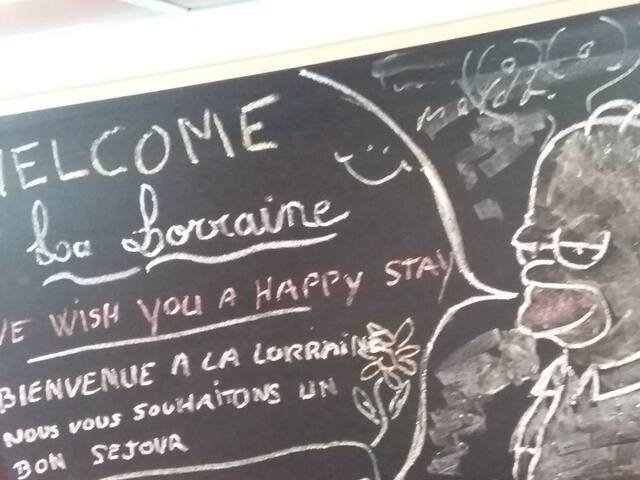 WELCOME
La Lorraine
WE WISH YOU A HAPPY STAY
BIENVENUE A LA LORRAINE
NOUS VOUS SOUHAITONS UN
BON SEJOUR